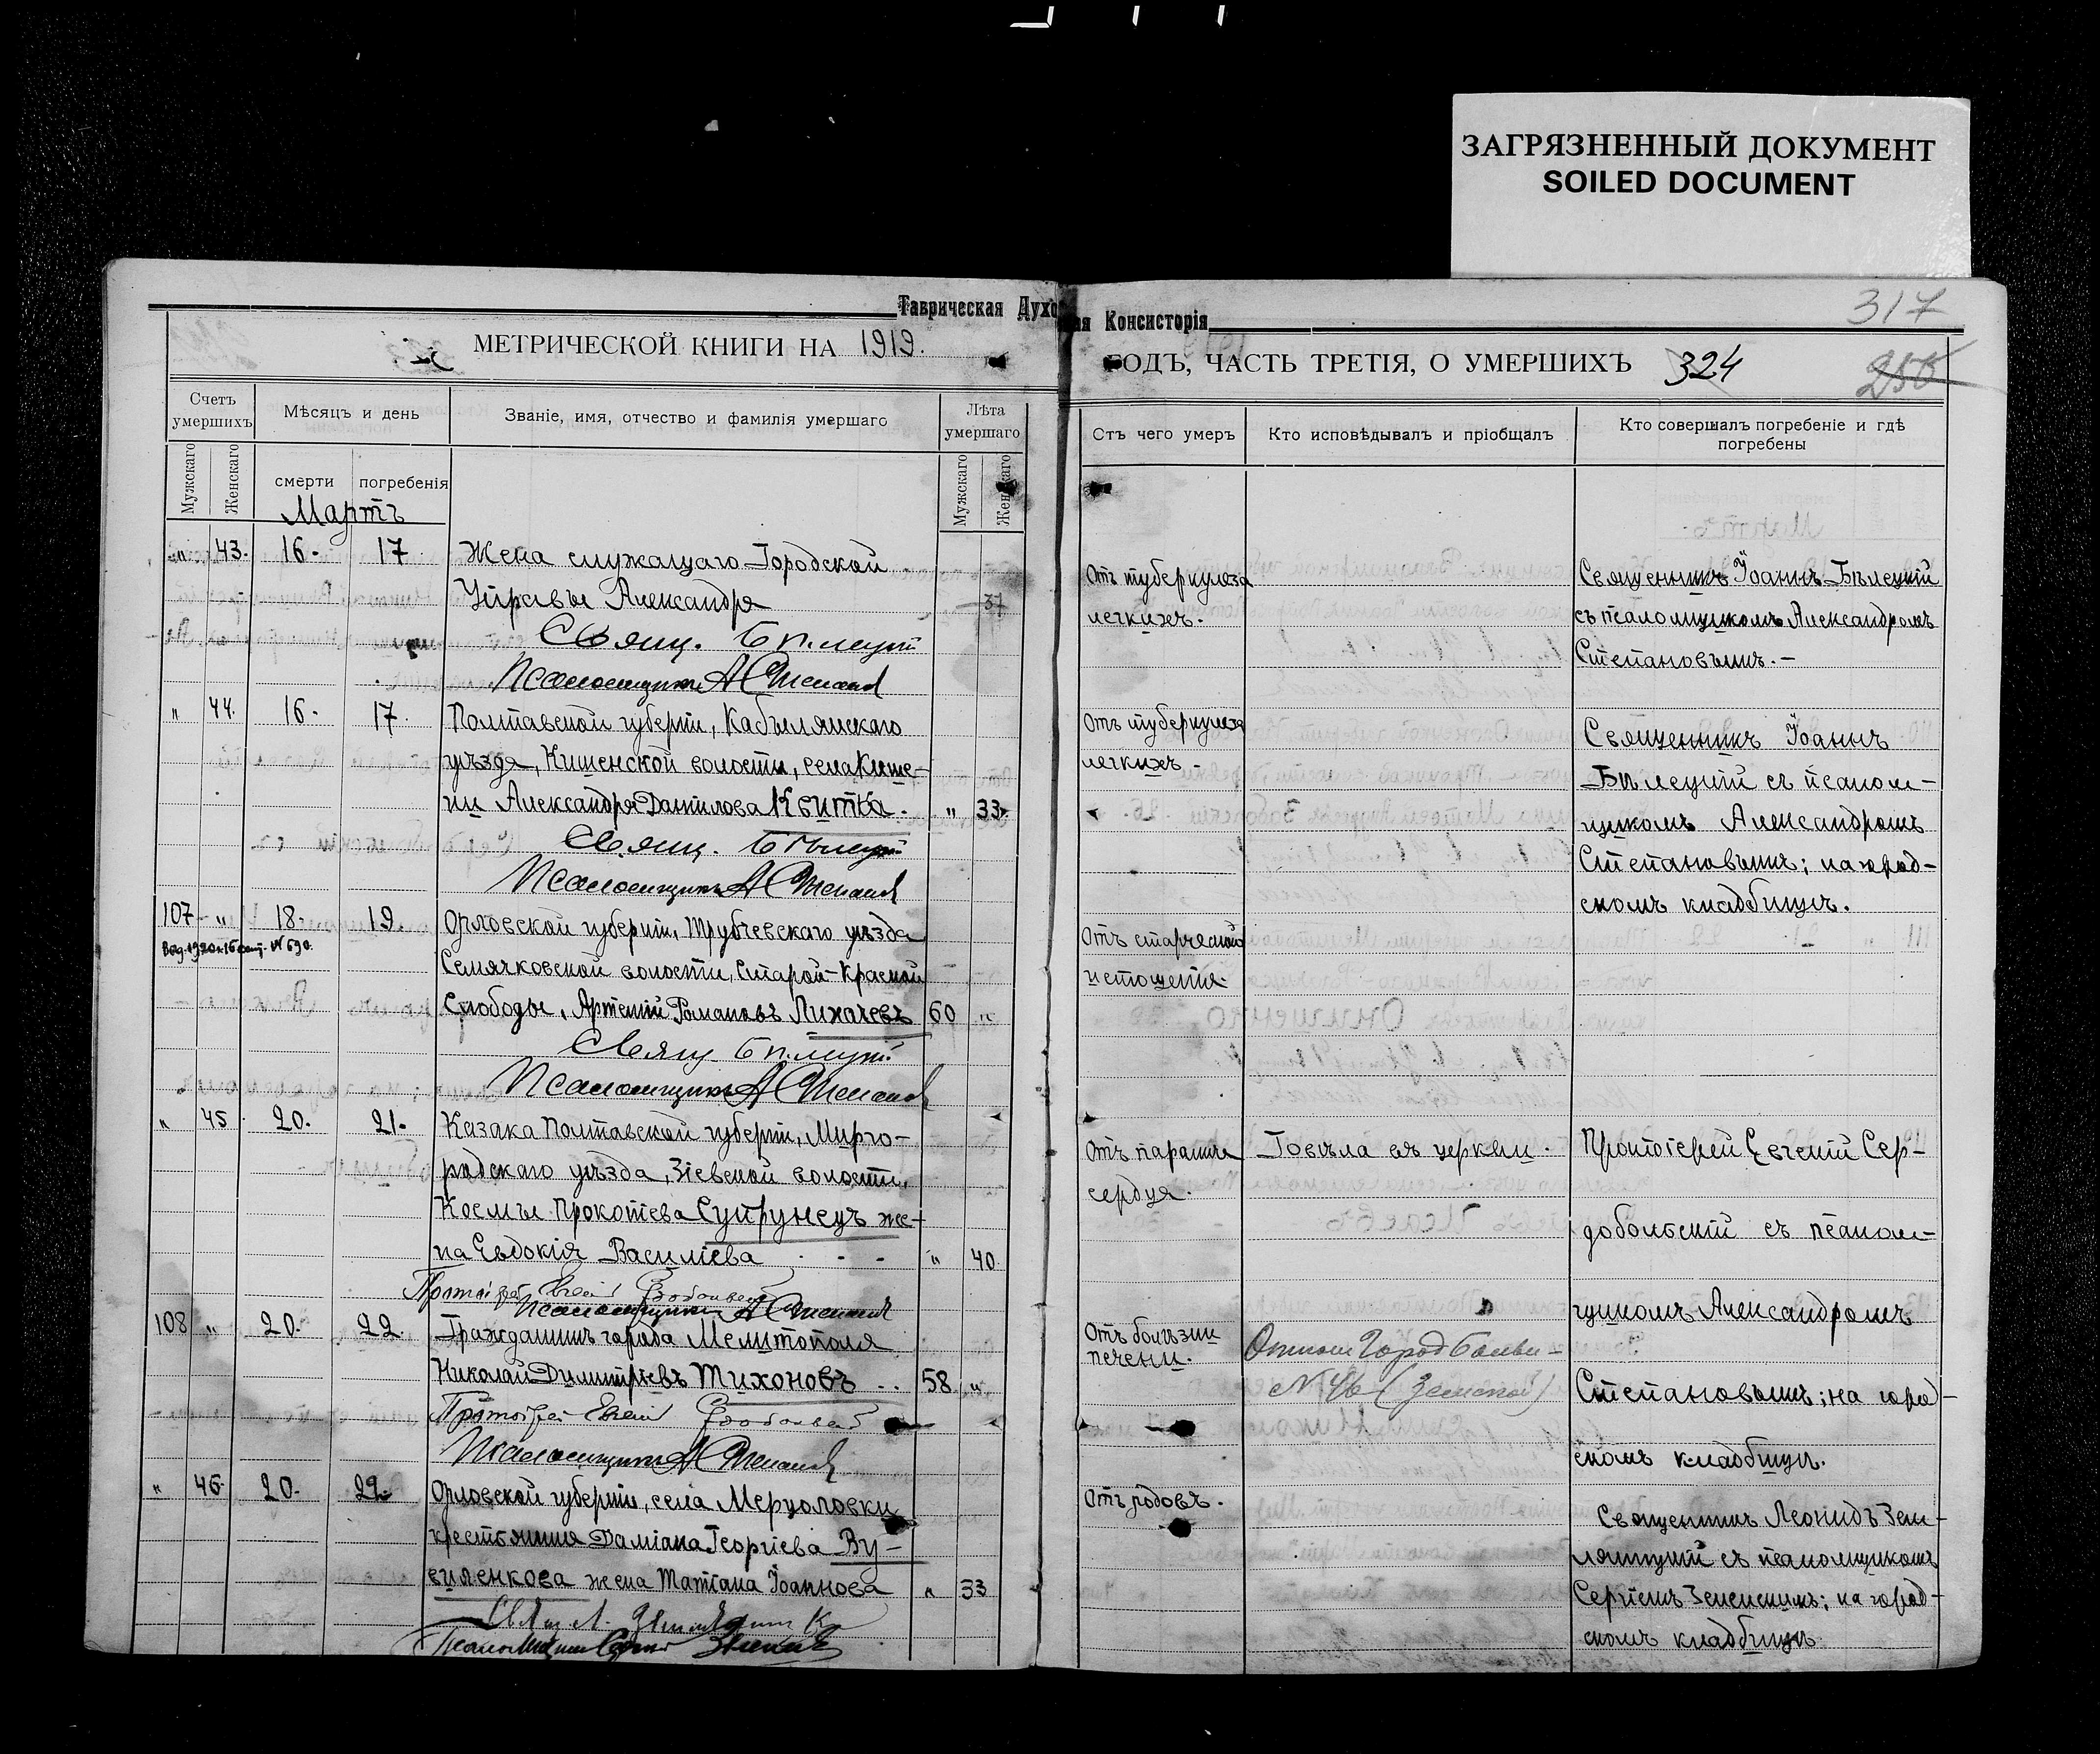 ЗАГРЯЗНЕННЫЙ ДОКУМЕНТ
SOILED DOCUMENT
Таврическая Духо
ая Консисторія
317
МЕТРИЧЕСКОЙ КНИГИ НА 1919.
ГОДЪ, ЧАСТЬ ТРЕТІЯ, О УМЕРШИХЪ 324
256
Счетъ умершихъ
Мѣсяцъ и день
Званіе, имя, отчество и фамилія умершаго
Лѣта умершаго
Мужскаго
Женскаго
смерти
погребенія
Мужскаго
Женскаго
Мартъ
" 43. 16. 17. Жена служащаго Городской
Управы Александра 37
Свящ. Бѣлецкій
Псаломщикъ А Степановъ
" 44. 16. 17. Полтавской губерніи, Кабылянскаго
уѣзда, Кишенской волости, села Кише-
ни Александра Данилова Квитка. " 33.
Свящ. Бѣлецкій
Псаломщикъ А Степановъ
107 " 18. 19. Орловской губерніи, Трубчевскаго уѣзда
Выд. 1920 г. 16 сент. № 690.
Семячковской волости, Старой-Красной
Слободы, Артемій Романовъ Лихачевъ 60 "
Свящ. Бѣлецкій
Псаломщикъ А Степановъ
" 45 20. 21. Казака Полтавской губерніи, Мирго-
родскаго уѣзда, Зіевской волости,
Космы Прокопіева Супрунецъ же-
на Евдокія Василіева " 40.
Протоіерей Евгеній Сердобольскій
Псаломщикъ А Степановъ
108 " 20. 22. Гражданинъ города Мелитополя
Николай Димитріевъ Тихоновъ .. 58. "
Протоіерей Евгеній Сердобольскій
Псаломщикъ А Степановъ
" 46. 20. 22. Орловской губерніи, села Мерцоловки
крестьянина Даміана Георгіева Ву-
виленкова жена Татіана Іоаннова " 33
Псаломщикъ Сергій Зеленскій
Стъ чего умеръ
Кто исповѣдывалъ и пріобщалъ
Кто совершалъ погребеніе и гдѣ погребены
Отъ туберкулеза
легкихъ.
Священникъ Іоаннъ Бѣлецкій
съ псаломщикомъ Александромъ
Степановымъ.-
Отъ туберкулеза
легкихъ.
Священникъ Іоаннъ
Бѣлецкій съ псалом-
щикомъ Александромъ
Степановымъ; на город-
скомъ кладбищѣ.
Отъ старческаго
истощенія.
Отъ паралича
сердца.
Говѣла въ церкви.
Протоіерей Евгеній Сер-
добольскій съ псалом-
щикомъ Александромъ
Степановымъ; на город-
скомъ кладбищѣ.
Отъ болѣзни
печени.
№ 46 (Земской)
Отъ родовъ.
Священникъ Леонидъ Зем-
ляницкій съ псаломщикомъ
Сергіемъ Зеленскимъ; на город-
скомъ кладбищѣ.